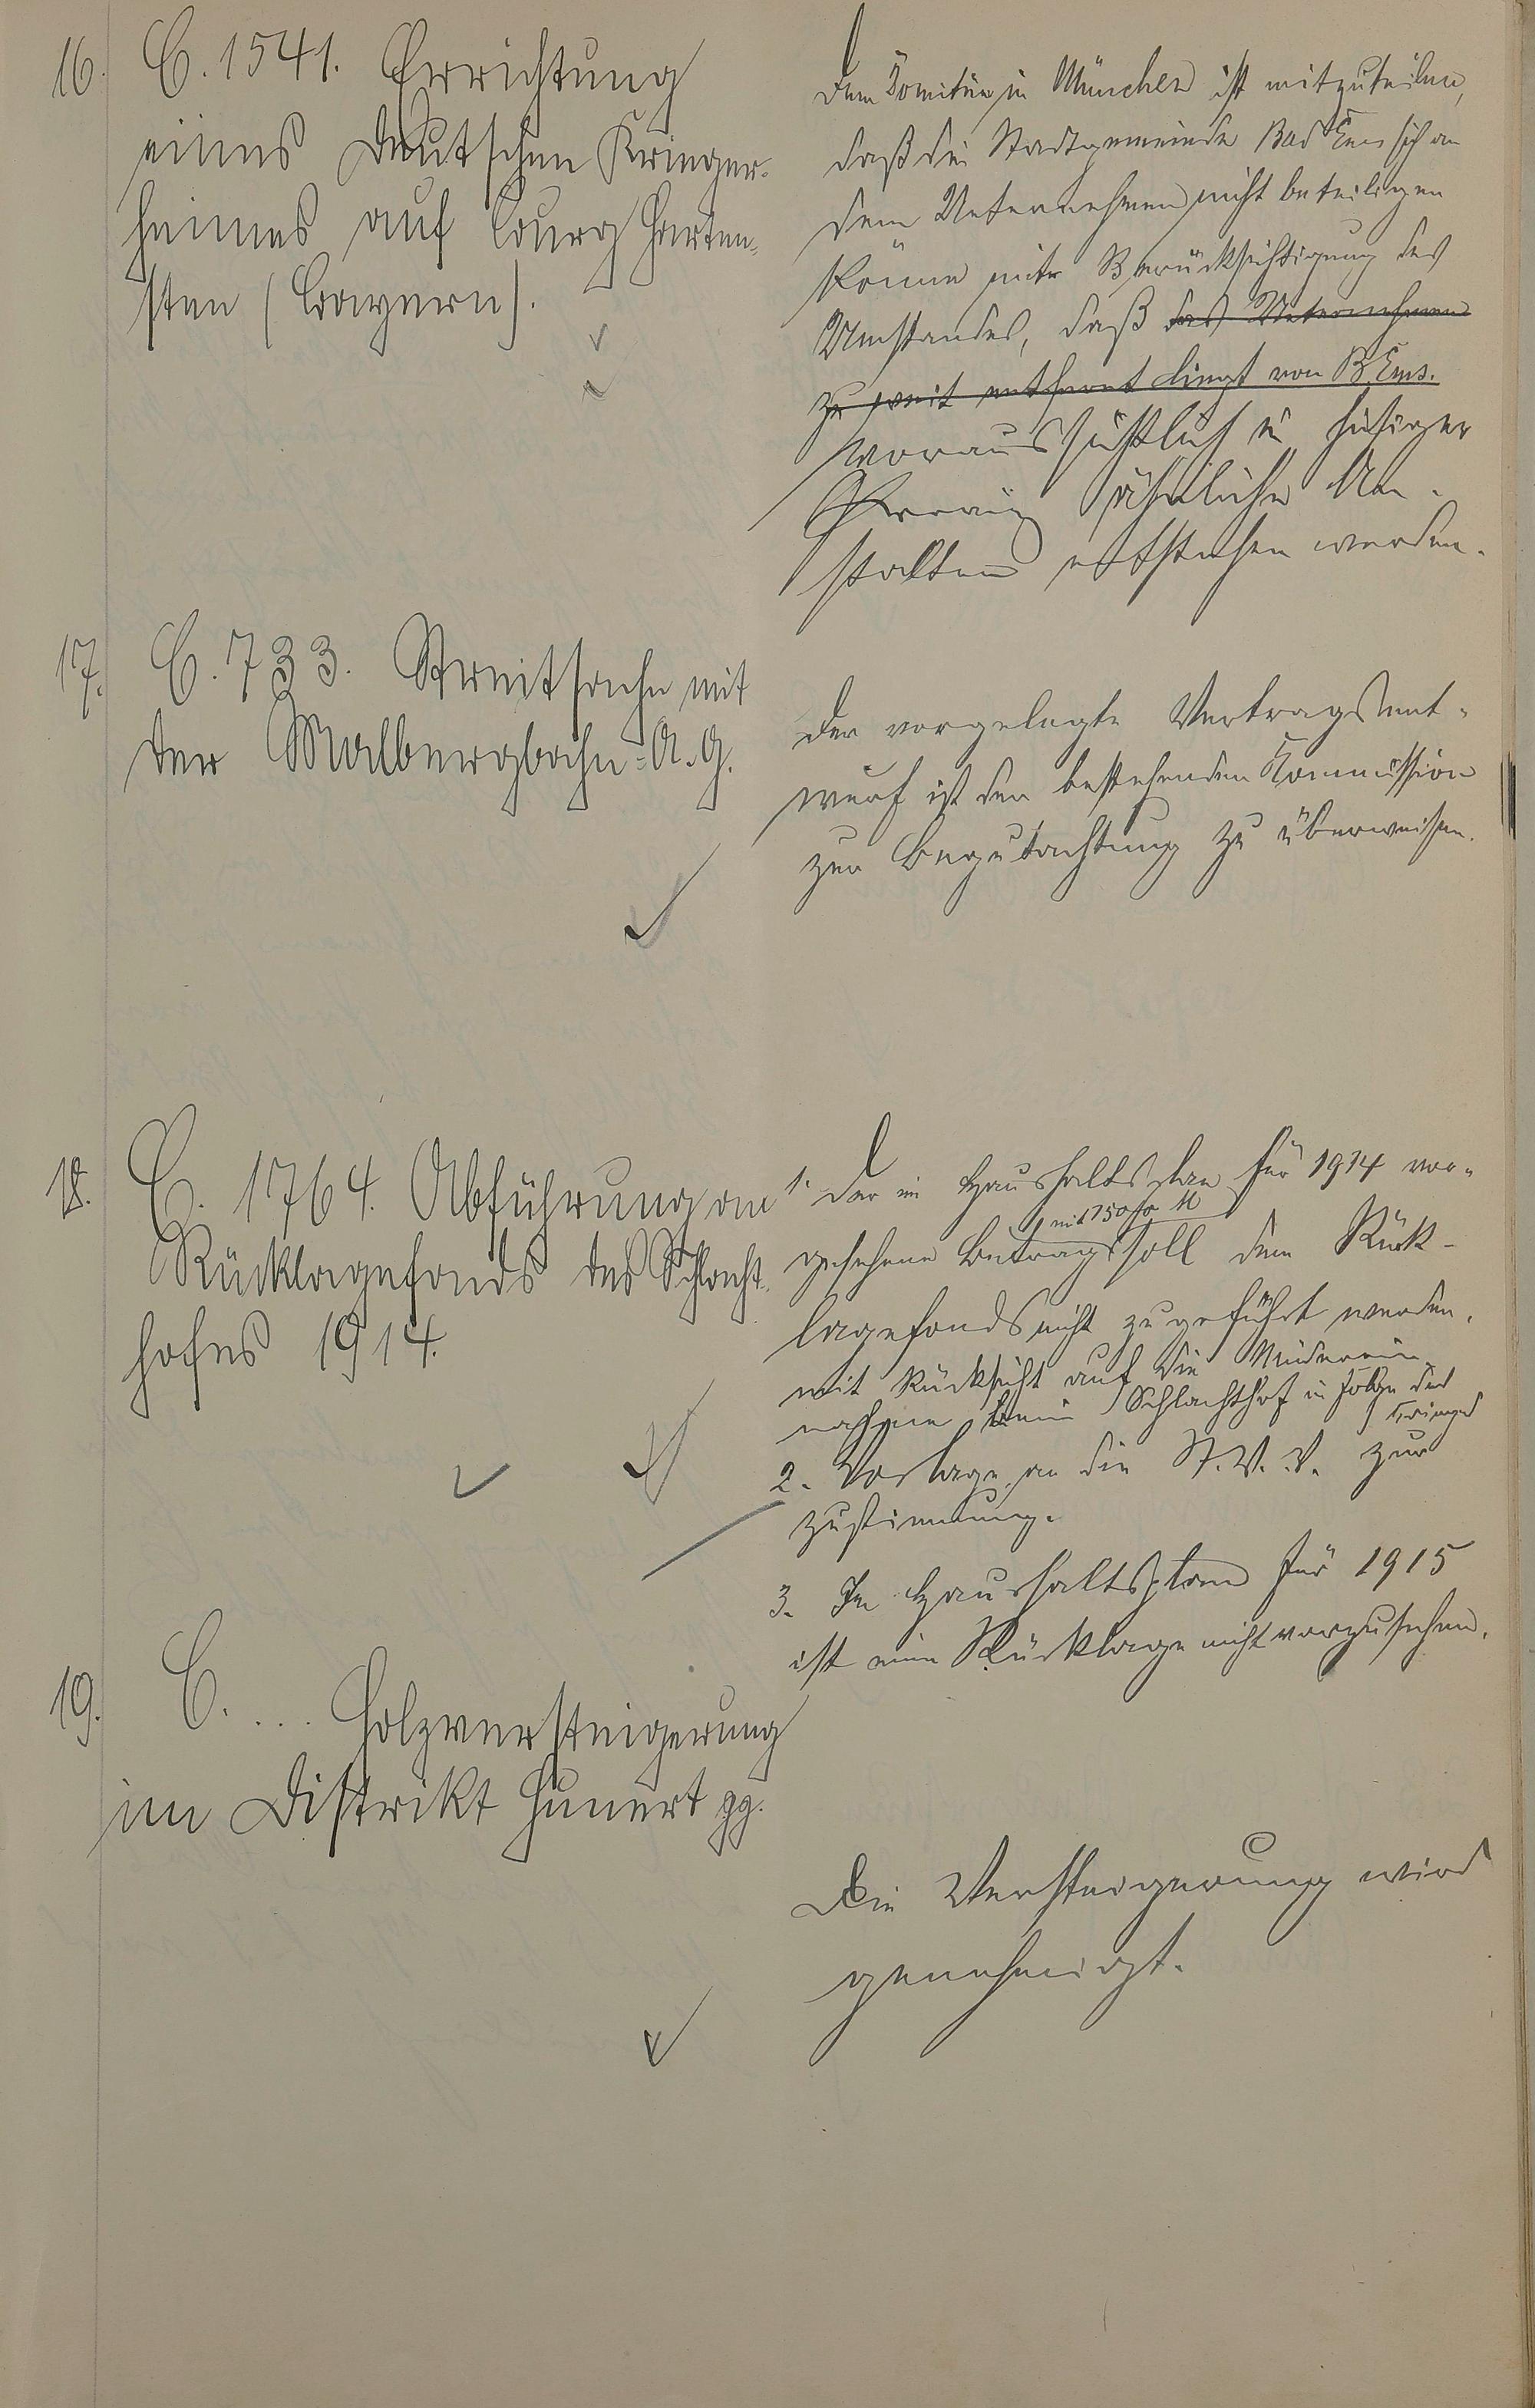 16. C. 1541. Errichtung
eines Deutschen Krieger-
heimes auf Burg Harten-
sten (Bayern).
Dem Komitee in München ist mitzuteilen,
daß die Stadtgemeinde Bad Ems sich an
dem Unternehmen nicht beteiligen
könne mit Berücksichtigung des
Umstandes, daß das Unternehmen
zu weit entfernt liegt von B. Ems.
voraussichtlich in hiesiger
ähnliche An-
stalten entstehen werden.
17. C. 733. Streitsache mit
der Malbergbahn-A.G.
Der vorgelegte Vertragsent-
wurf ist der bestehenden Kommission
zur Begutachtung zu überweisen.
18. C. 1764. Abführung an
Rücklagefonds des Schlacht-
hofes 1914.
1. Der im Haushaltsplan für 1914 vor-
mit 750,00 M
gesehene Betrag soll dem Rück-
lagefonds nicht zugeführt werden,
mit Rücksicht auf die Minderein-
nahme beim Schlachthof in Folge des
Krieges
2. Vorlage an die St. V. V. zur
Zustimmung.
3. Im Haushaltsplan für 1915
ist eine Rücklage nicht vorzusehen.
19. C. ... Holzversteigerung
im Distrikt Hunert pp.
Die Versteigerung wird
genehmigt.